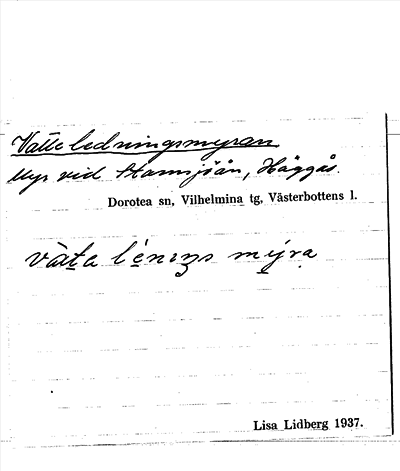 Vatteledningsmyran
Myr vid Stamsjöån, Häggås.
Dorotea sn, Vilhelmina tg, Västerbottens l.
Lisa Lidberg 1937.